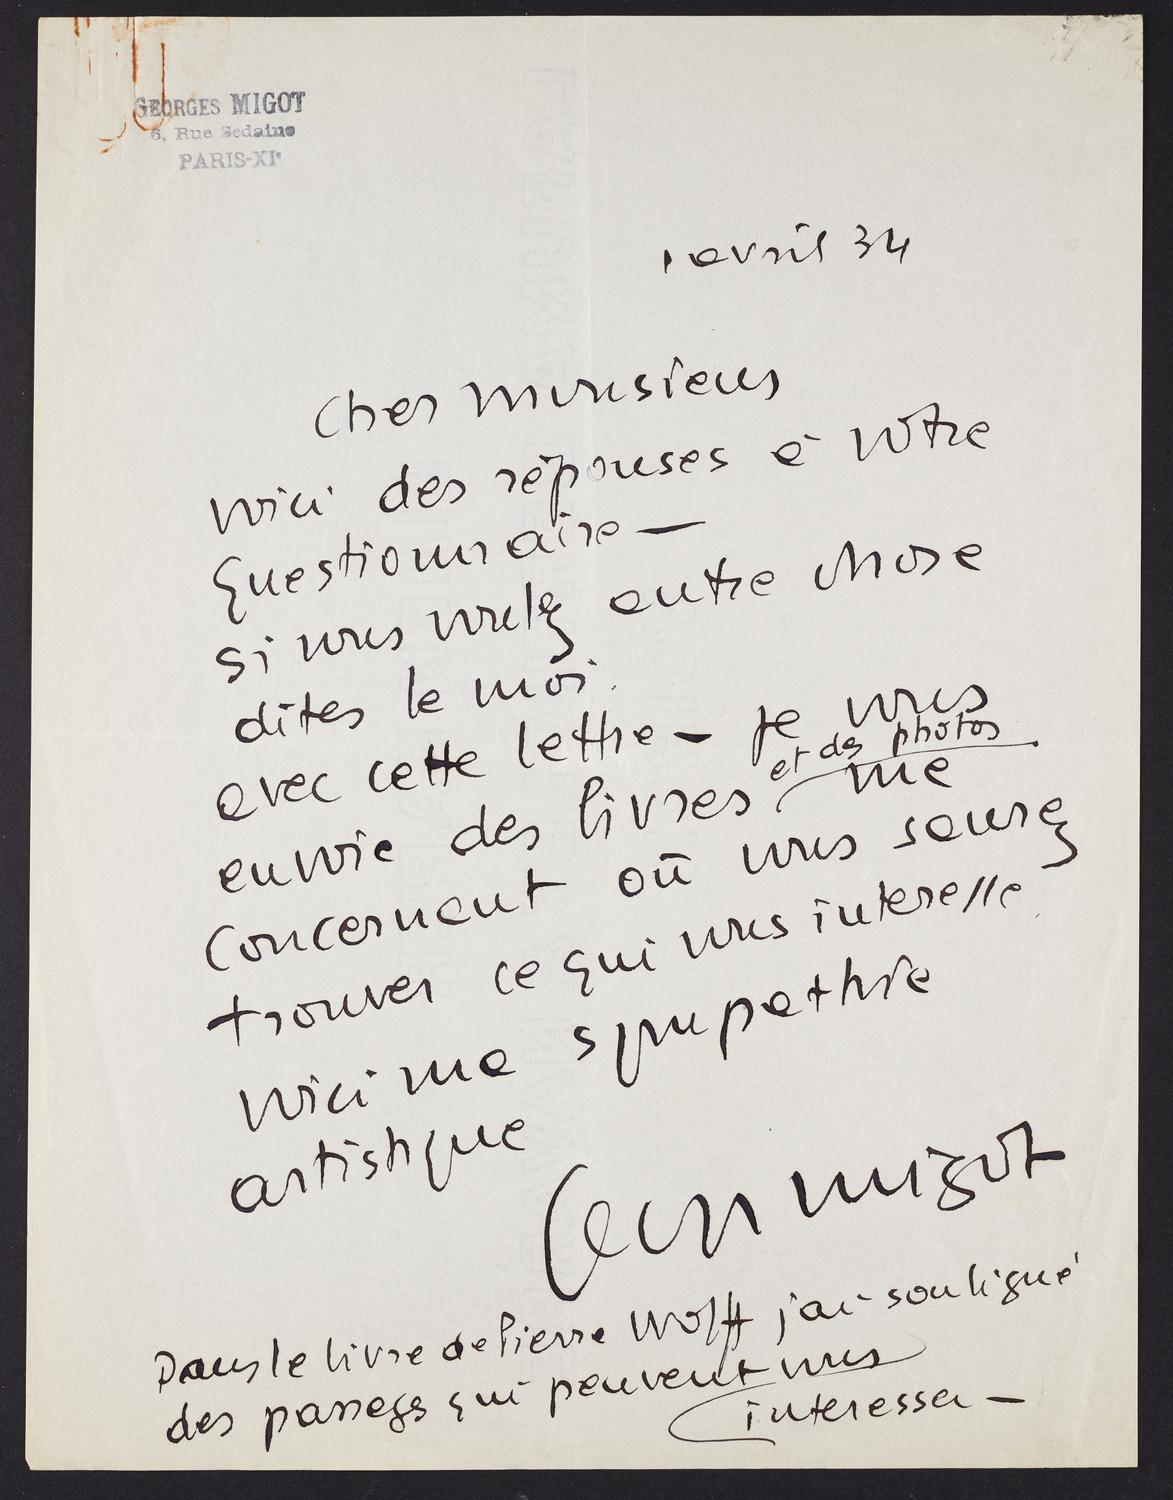 GEORGES MIGOT
6, Rue Sedaine
PARIS-XIe
1 avril 34
Cher Monsieur
voici des réponses à votre
questionnaire —
si vous voulez autre chose
dites le moi.
avec cette lettre — je vous
et des photos
envoie des livres me
concernant où vous saurez
trouver ce qui vous interesse.
voici ma sympathie
artistique
Georg migot
Dans le livre de Pierre Wolff j'ai souligné
des passages qui peuvent vous
interesser —